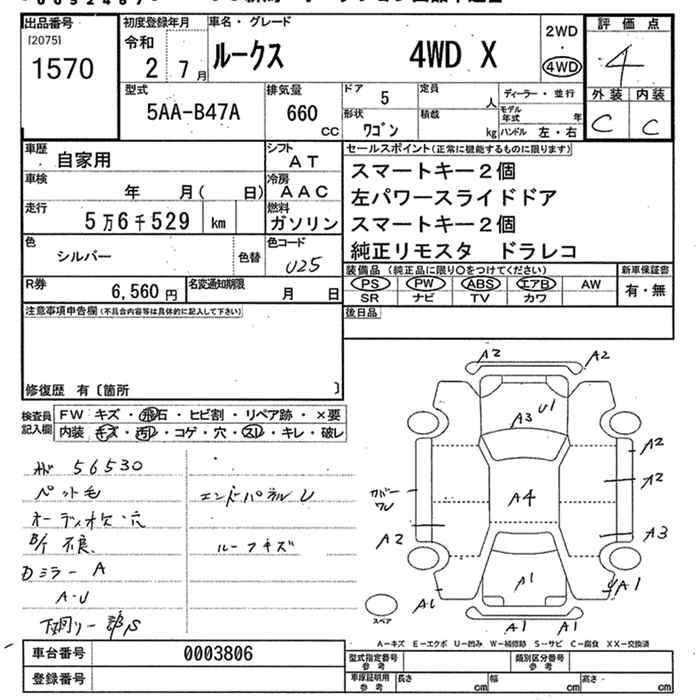 出品番号 初度登録年月 車名・グレード 2WD 評価点
[2075] 令和 ルークス 4WD X ・ 4
1570 2 7月 4WD
型式 排気量 ドア 5 定員 人 ディーラー・並行 外装 内装
5AA-B47A 660 cc 形状 ワゴン 積載 kg モデル年式 年 C C
ハンドル 左・右
車歴 自家用 シフト AT セールスポイント(正常に機能するものに限ります)
車検 年 月( 日) 冷房 AAC スマートキー2個
走行 5万6千529 km 燃料 ガソリン 左パワースライドドア
色 シルバー 色替 色コード U25 スマートキー2個
純正リモスタ ドラレコ
R券 6,560円 名変通知期限 月 日 装備品(純正品に限り○をつけてください) 新車保証書
PS PW ABS エアB AW 有・無
SR ナビ TV カワ
注意事項申告欄(不具合内容等は具体的に記入して下さい) 後日品
修復歴 有〔箇所 〕
検査員記入欄 FW キズ・飛石・ヒビ割・リペア跡・×要
内装 キズ・汚レ・コゲ・穴・スレ・キレ・破レ
56530
ペット毛 エンドパネルU
オーディオケ・穴
不良 ルーフキズ
Dミラー A
A・U
A2 A2
U1
A3
A2
カバーワレ A4 A2
A2 A3
A1 A1 A1
A1 A1
スペア
A-キズ E-エクボ U-凹み W-補修跡 S-サビ C-腐食 XX-交換済
車台番号 0003806 型式指定番号 参考 類別区分番号 参考
登録番号 車庫証明用 参考 長さ cm 幅 cm 高さ cm